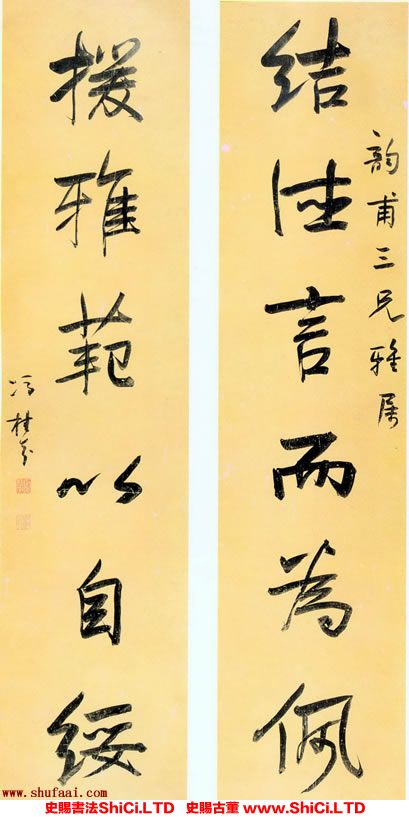 韵甫三兄雅属
結德言而為佩
援雅範以自綏
馮桂芬
www.shufaai.com
史賜書法ShiCi.LTD 史賜古董 www.ShiCi.LTD